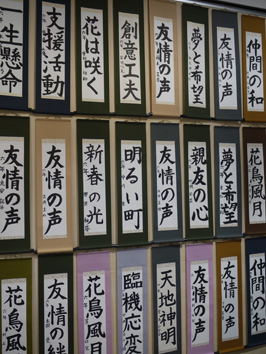 生懸命
支援活動
花は咲く
創意工夫
友情の声
夢と希望
友情の声
仲間の和
友情の声
友情の声
新春の光
明るい町
友情の声
親友の心
夢と希望
花鳥風月
花鳥風月
友情の絆
花鳥風月
臨機応変
天地神明
友情の声
友情の声
仲間の和